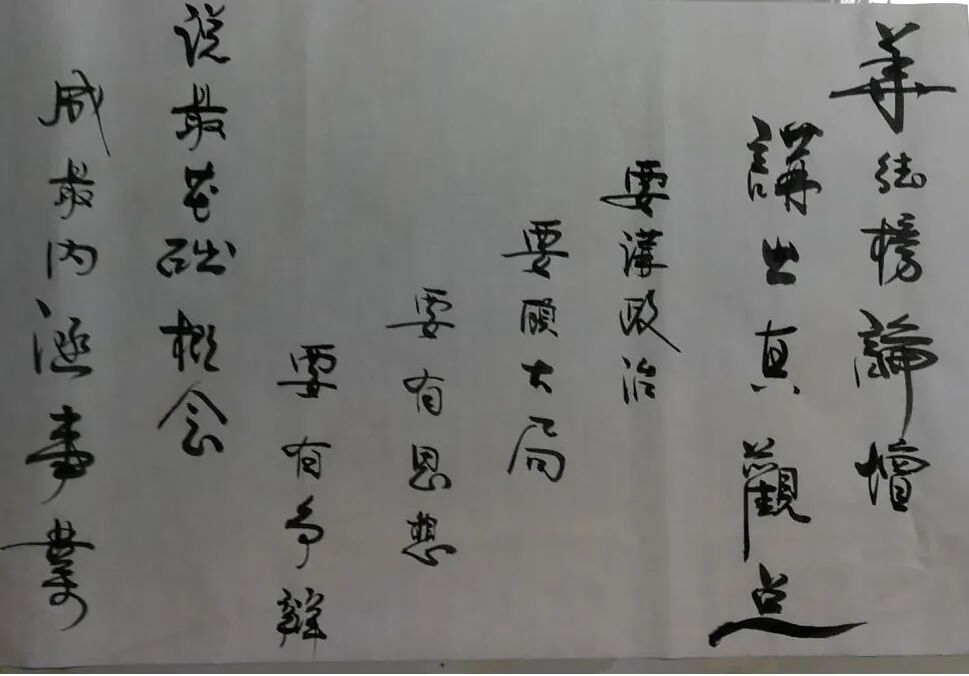 華榜論壇
講出真觀点
要講政治
要顾大局
要有思想
要有争辩
说最基础概念
成最内涵事業